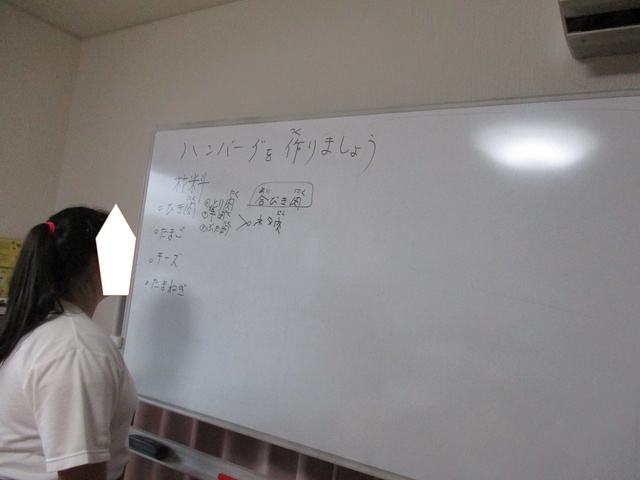 ハンバーグを作りましょう
材料
○ひき肉 ①とり肉 合びき肉
②牛肉
○たまご ③ぶた肉
○チーズ
○たまねぎ